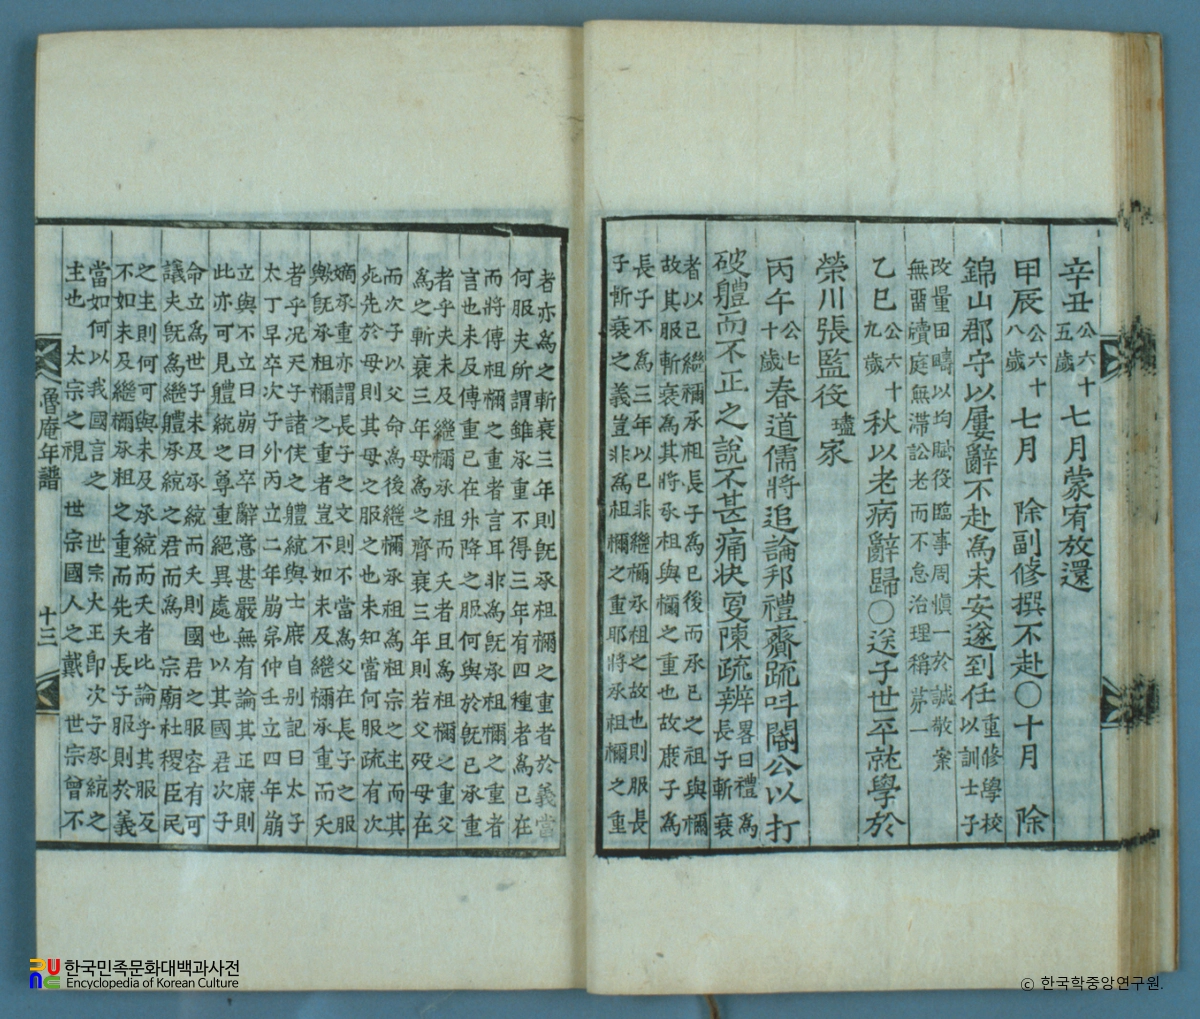 辛丑公六十五歲七月蒙宥放還
甲辰公六十八歲七月 除副修撰不赴○十月 除
錦山郡守以屢辭不赴爲未安遂到任重修學校以訓士子
改量田疇以均賦役臨事周愼一於誠敬案
無留牘庭無滯訟老而不怠治理稱茅一
乙巳公六十九歲秋以老病辭歸○送子世平就學於
榮川張監役璶家
丙午公七十歲春道儒將追論邦禮齎疏叫閽公以打
破軆而不正之說不甚痛快更陳疏辨畧曰禮爲長子斬衰
者以已繼禰承祖長子爲已後而承已之祖與禰
故其服斬衰爲其將承祖與禰之重也故庶子爲
長子不爲三年以已非繼禰承祖之故也則服長
子斬衰之義豈非爲祖禰之重耶將承祖禰之重
者亦爲之斬衰三年則旣承祖禰之重者於義當
何服夫所謂雖承重不得三年有四種者爲已在
而將傳祖禰之重者言耳非爲旣承祖禰之重者
言也未及傳重已在升降之服何與於旣已承重
者乎夫未及繼禰承祖而夭者且爲祖禰之重父
爲之斬衰三年母爲之齊衰三年則若父歿母在
而次子以父命爲後繼禰承祖爲祖宗之主而其
死先於母則其母之服之也未知當何服疏有次
嫡承重亦謂長子之文則不當爲父在長子之服
歟旣承祖禰之重者豈不如未及繼禰承重而夭
者乎况天子諸侯之軆統與士庶自別記曰太子
太丁早卒次子外丙立二年崩弟仲壬立四年崩
立與不立曰崩曰卒辭意甚嚴無有論其正庶則
此亦可見軆統之尊重絕異處也以其國君次子
命立爲世子未及承統而夭則國君之服容有可
議夫旣爲繼軆承統之君而爲 宗廟社稷臣民
之主則何可與未及承統而夭者比論乎其服反
不如未及繼禰承祖之重而先夭長子服則於義
當如何以我國言之 世宗大王卽次子承統之
主也 太宗之視 世宗國人之戴 世宗曾不
魯庵年譜 十三
한국민족문화대백과사전
Encyclopedia of Korean Culture
© 한국학중앙연구원.